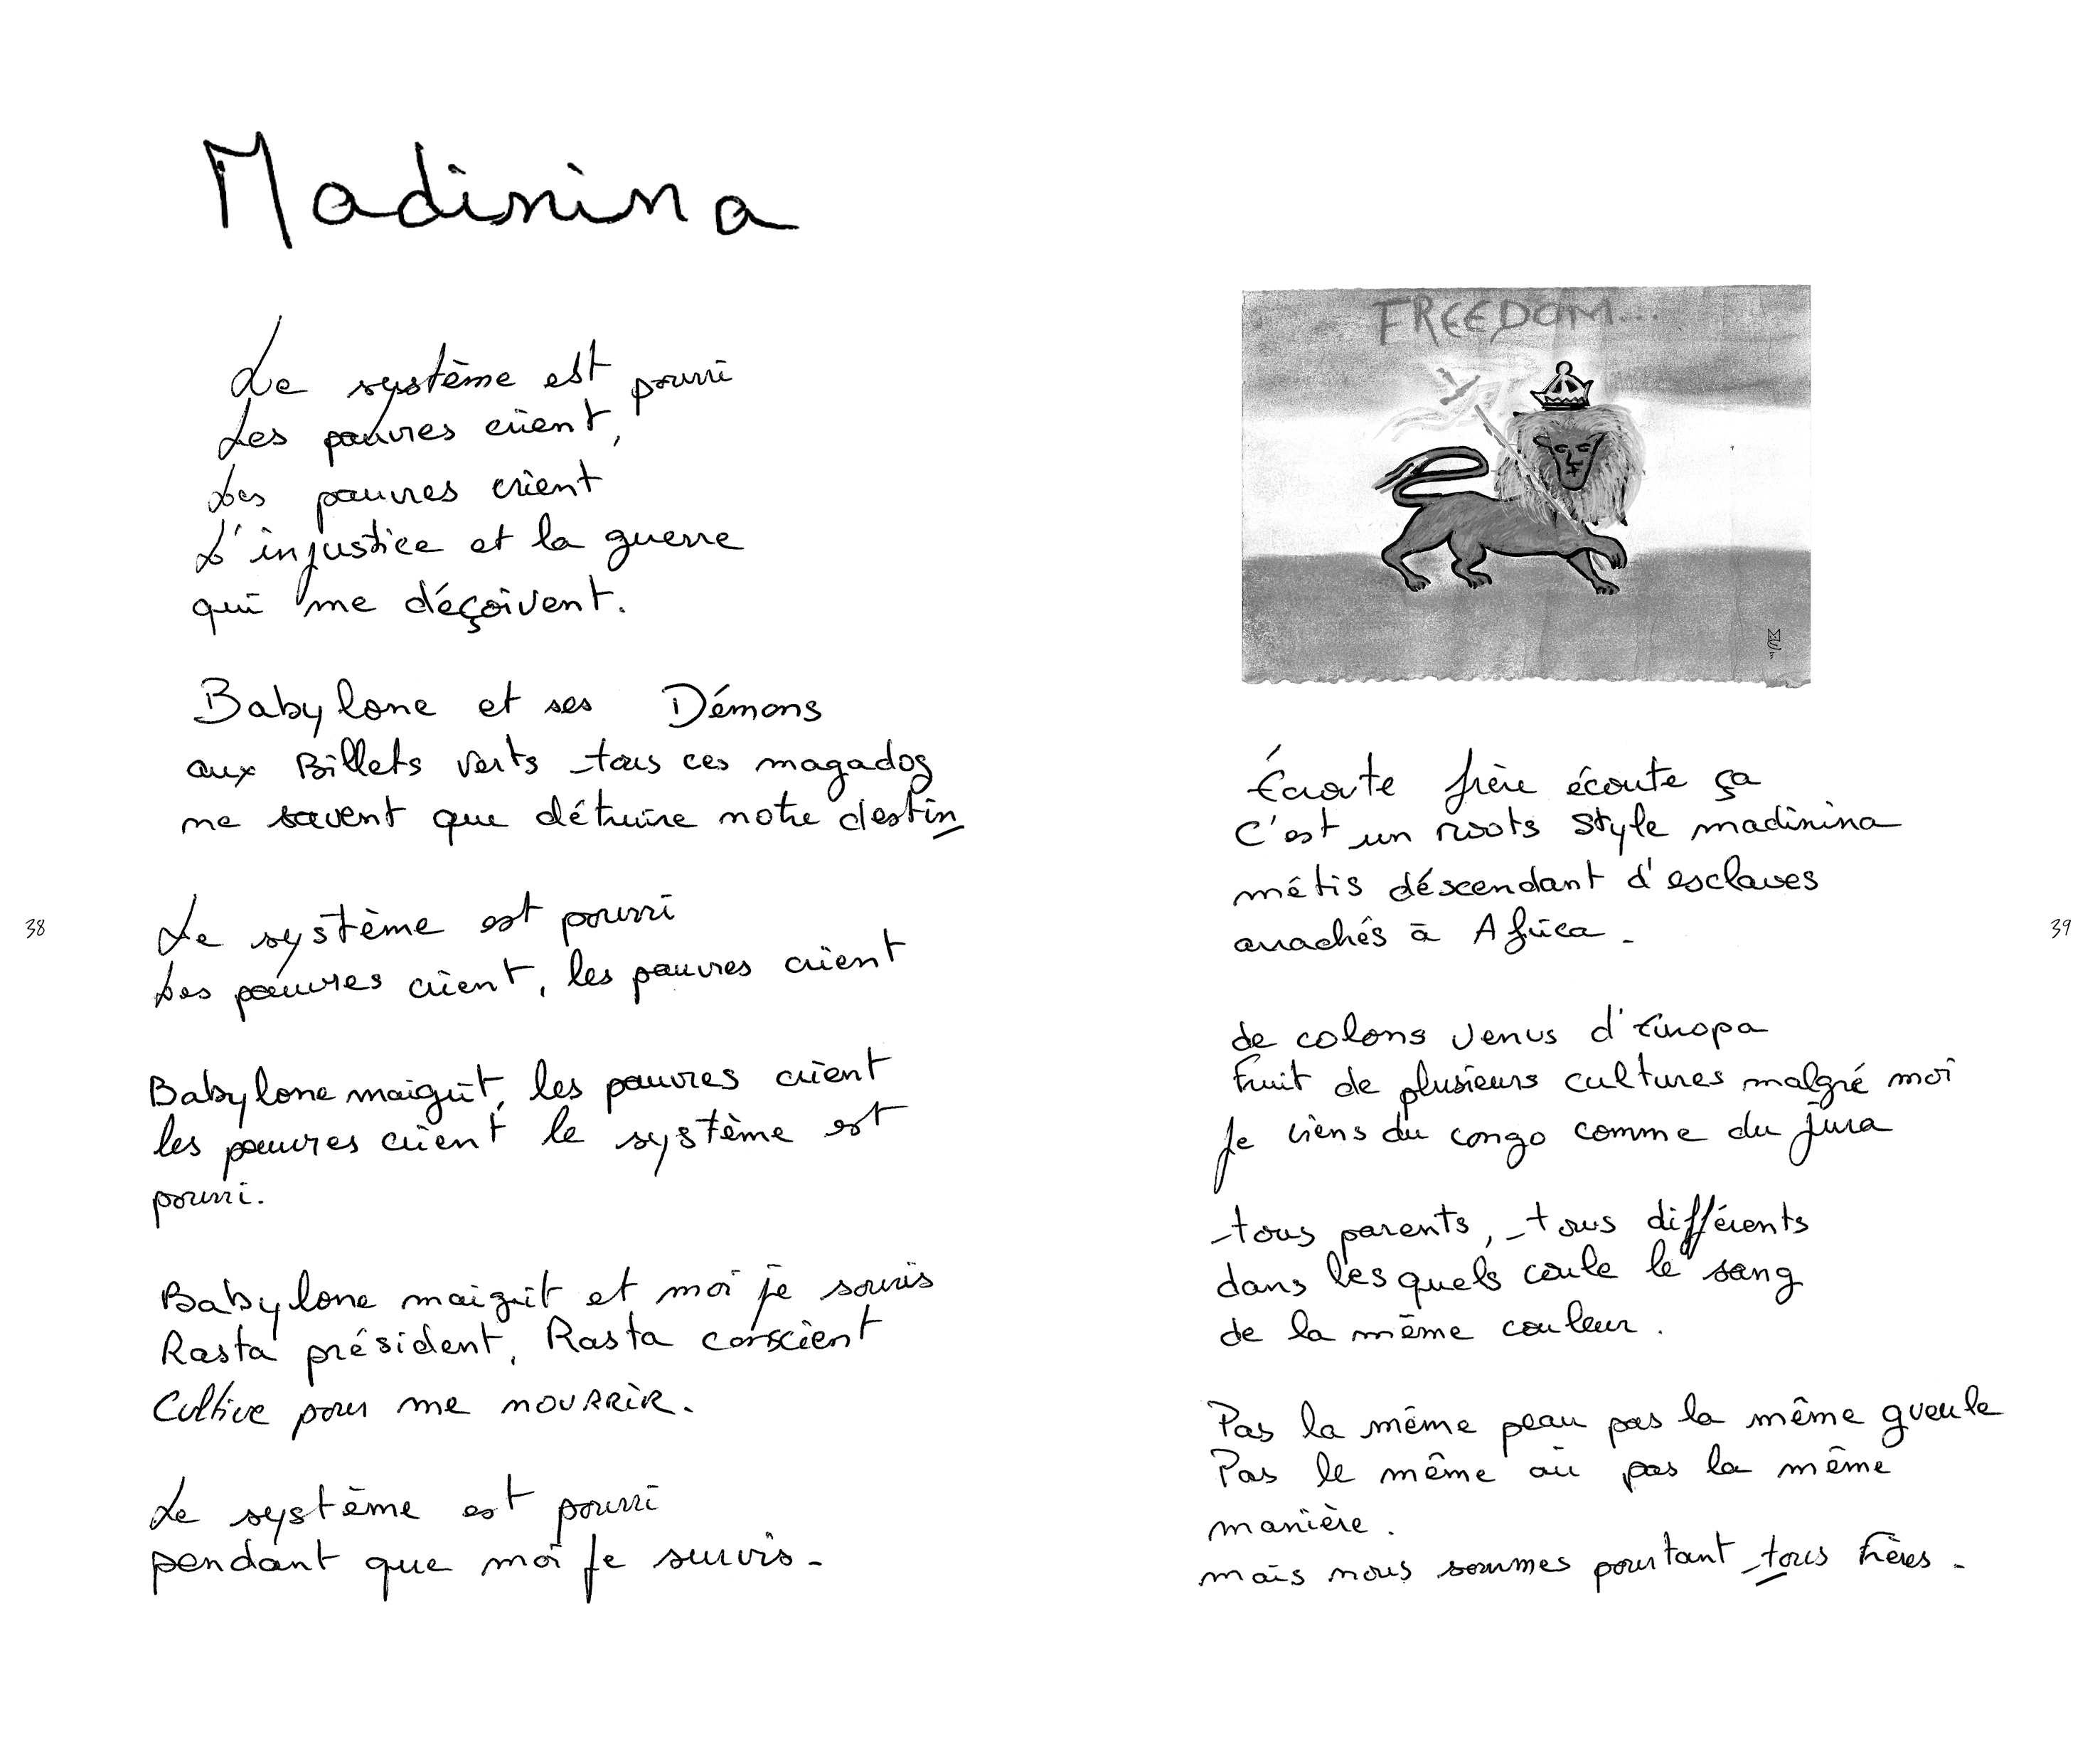 Madinina
Le système est pourri
Les pauvres crient,
Les pauvres crient
L'injustice et la guerre
qui me déçoivent.
Babylone et ses Démons
aux Billets verts tous ces magadog
ne savent que détruire notre destin
Le système est pourri
Les pauvres crient, les pauvres crient
Babylone maigrit, les pauvres crient
les pauvres crient le système est
pourri.
Babylone maigrit et moi je souris
Rasta président, Rasta conscient
Cultive pour me nourrir.
Le système est pourri
pendant que moi je survis -
38
FREEDOM...
Écoute frère écoute ça
C'est un roots style madinina
métis déscendant d'esclaves
arrachés à Africa -
de colons venus d'Europa
Fruit de plusieurs cultures malgré moi
Je viens du congo comme du jura
tous parents, tous différents
dans lesquels coule le sang
de la même couleur.
Pas la même peau pas la même gueule
Pas le même air pas la même
manière.
mais nous sommes pourtant tous Frères -
39